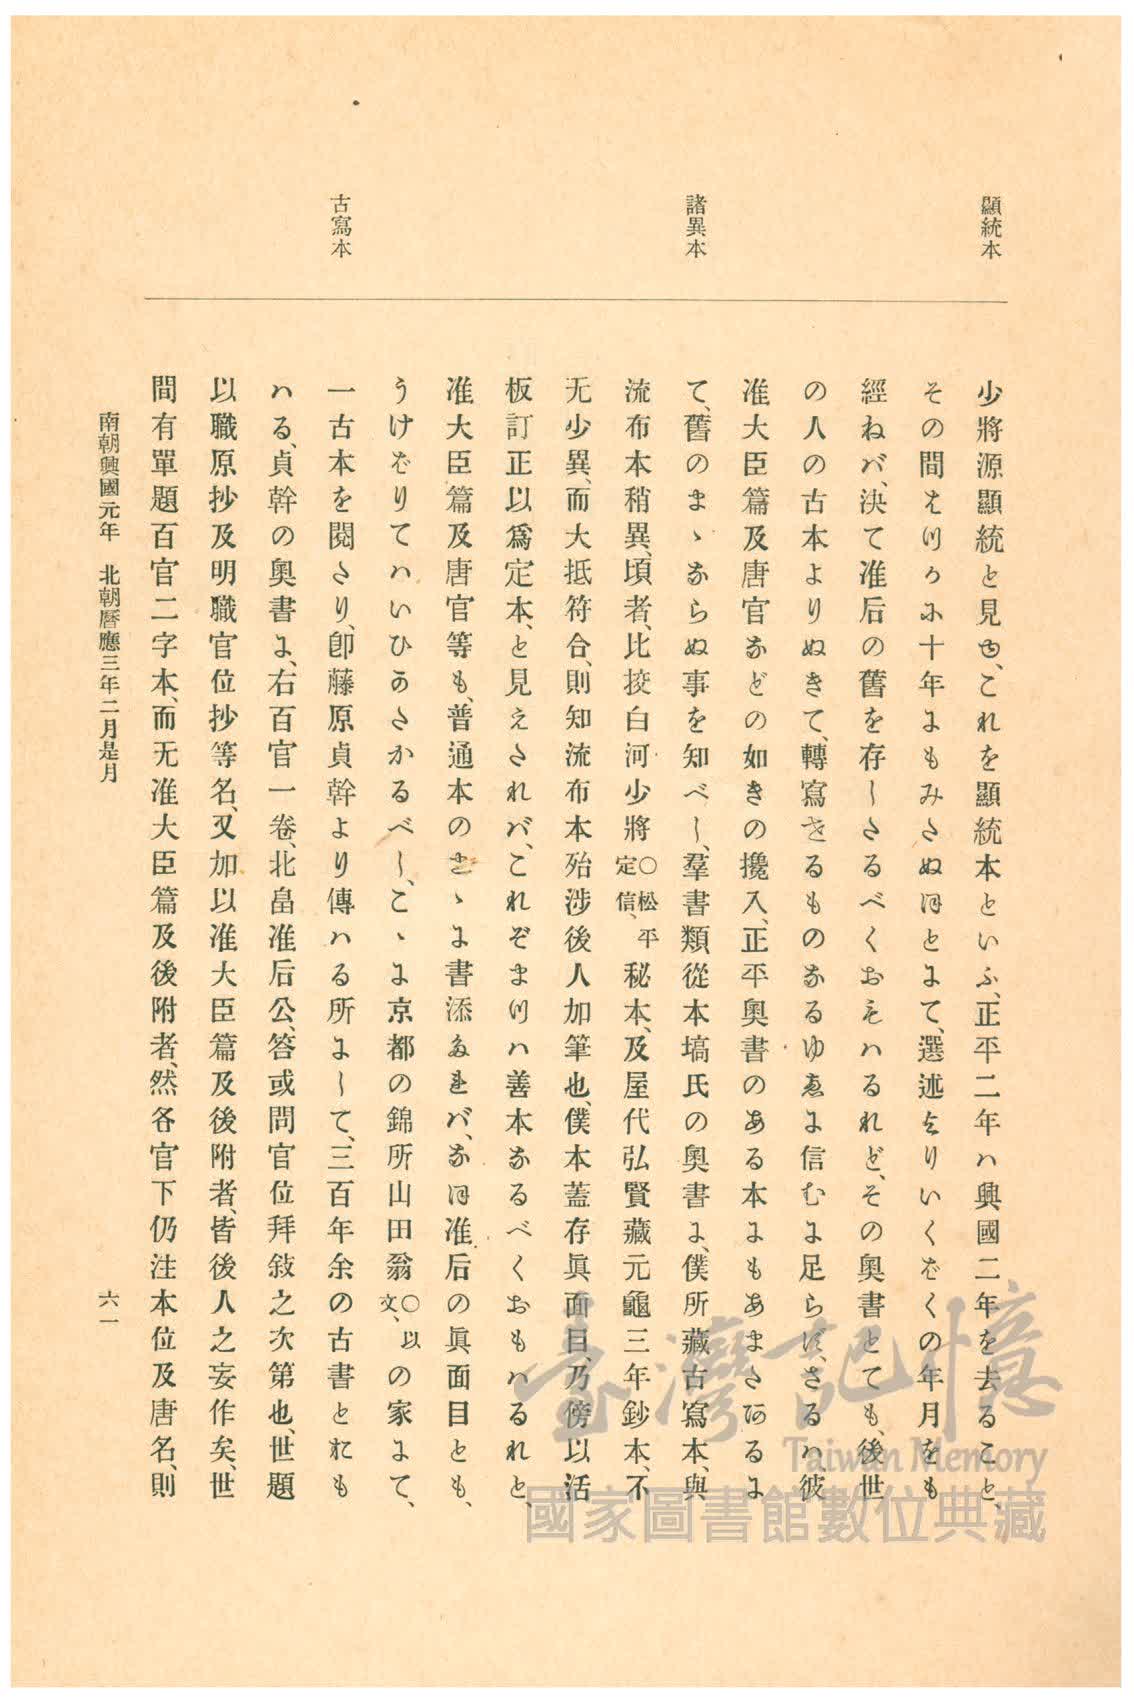 顯統本
諸異本
古寫本
少將源顯統と見ゆ、これを顯統本といふ、正平二年ハ興國二年を去ること、
その間わつかに十年にもみたぬほとにて、選述よりいくばくの年月をも
經ねバ、決て准后の舊を存したるべくおもハるれど、その奧書とても、後世
の人の古本よりぬきて、轉寫せるものなるゆゑに信むに足らず、さるハ彼
准大臣篇及唐官などの如きの攙入、正平奧書のある本にもあまたあるに
て、舊のまゝならぬ事を知べし、羣書類從本塙氏の奧書に、僕所藏古寫本、與
流布本稍異、頃者、比挍白河少將〇松平定信、秘本、及屋代弘賢藏元龜三年鈔本、不
无少異、而大抵符合、則知流布本殆涉後人加筆也、僕本蓋存眞面目、乃傍以活
板訂正以爲定本、と見えたれバ、これぞまつハ善本なるべくおもハるれと、
准大臣篇及唐官等も、普通本のまゝに書添たれバ、なほ准后の眞面目とも、
うけばりてハいひかたかるべし、こゝに京都の錦所山田翁〇以文、の家にて、
一古本を閱たり、卽藤原貞幹より傳ハる所にして、三百年余の古書とおも
ハる、貞幹の奧書に、右百官一卷、北畠准后公、答或問官位拜敍之次第也、世題
以職原抄及明職官位抄等名、又加以准大臣篇及後附者、皆後人之妄作矣、世
間有單題百官二字本、而无准大臣篇及後附者、然各官下仍注本位及唐名、則
南朝興國元年　北朝曆應三年二月是月
六一
臺灣記憶
Taiwan Memory
國家圖書館數位典藏